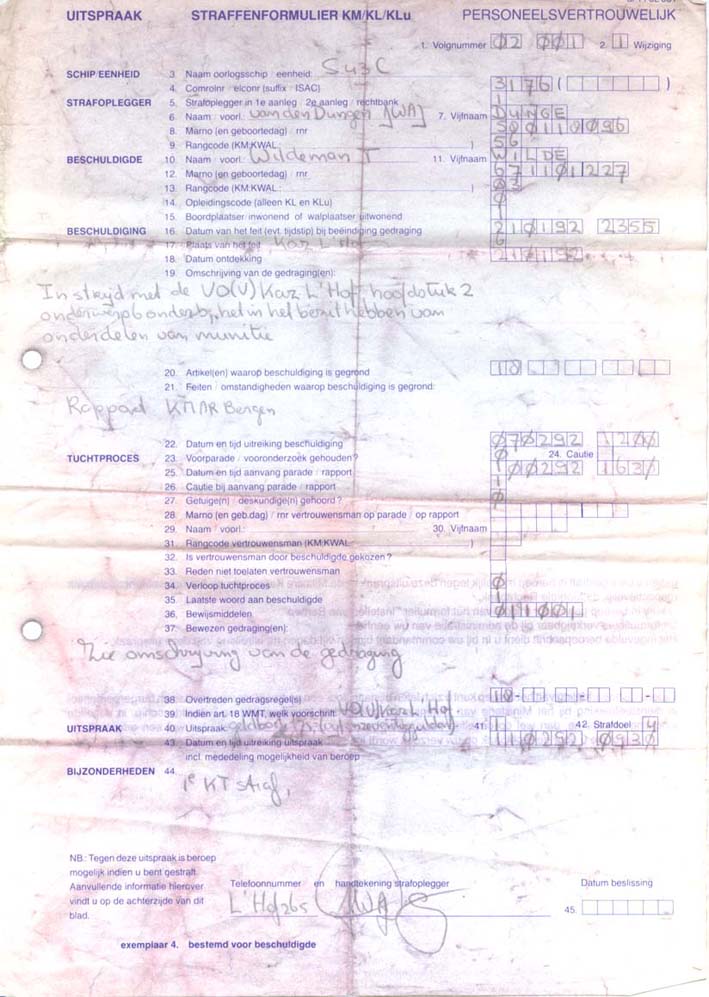 UITSPRAAK STRAFFENFORMULIER KM/KL/KLu PERSONEELSVERTROUWELIJK
1. Volgnummer 02 001 2. 1 Wijziging
SCHIP/EENHEID 3. Naam oorlogsschip / eenheid: SU3C
4. Comrolnr / elconr (suffix / ISAC) 3176 ( )
STRAFOPLEGGER 5. Strafoplegger in 1e aanleg / 2e aanleg / rechtbank 1
6. Naam / voorl. van den Dungen (WA) 7. Vijfnaam DUNGE
8. Marno (en geboortedag) / rnr
9. Rangcode (KM:KWAL: ) 56
BESCHULDIGDE 10. Naam / voorl. Wildeman T 11. Vijfnaam WILDE
12. Marno (en geboortedag) / rnr 671101227
13. Rangcode (KM:KWAL: ) 03
14. Opleidingscode (alleen KL en KLu) 0
15. Boordplaatser/inwonend of walplaatser/uitwonend 1
BESCHULDIGING 16. Datum van het feit (evt. tijdstip) bij beëindiging gedraging 210192 2355
17. Plaats van het feit Kaz L'Hof 6
18. Datum ontdekking 210192
19. Omschrijving van de gedraging(en):
In strijd met de VO(V) Kaz L'Hof hoofdstuk 2
het in het bezit hebben van
onderdelen van munitie
20. Artikel(en) waarop beschuldiging is gegrond 18
21. Feiten / omstandigheden waarop beschuldiging is gegrond:
Rapport KMAR Bergen
22. Datum en tijd uitreiking beschuldiging 070292 1200
TUCHTPROCES 23. Voorparade / vooronderzoek gehouden? 0 24. Cautie
25. Datum en tijd aanvang parade / rapport 100292 1630
26. Cautie bij aanvang parade / rapport 1
27. Getuige(n) / deskundige(n) gehoord? 0
28. Marno (en geb.dag) / rnr vertrouwensman op parade / op rapport
29. Naam / voorl.: 30. Vijfnaam
31. Rangcode vertrouwensman (KM:KWAL: )
32. Is vertrouwensman door beschuldigde gekozen?
33. Reden niet toelaten vertrouwensman
34. Verloop tuchtproces 0
35. Laatste woord aan beschuldigde 1
36. Bewijsmiddelen 011001
37. Bewezen gedraging(en):
Zie omschrijving van de gedraging
38. Overtreden gedragsregel(s) 18 - - -
39. Indien art. 18 WMT, welk voorschrift: VO(V) Kaz L' Hof
UITSPRAAK 40. Uitspraak: geldboete 41. 1 42. Strafdoel 4
43. Datum en tijd uitreiking uitspraak 110292 0930
incl. mededeling mogelijkheid van beroep
BIJZONDERHEDEN 44.
1e KT straf,
NB.: Tegen deze uitspraak is beroep
mogelijk indien u bent gestraft.
Aanvullende informatie hierover
vindt u op de achterzijde van dit
blad.
Telefoonnummer en handtekening strafoplegger Datum beslissing
L'Hof 265 45.
exemplaar 4. bestemd voor beschuldigde